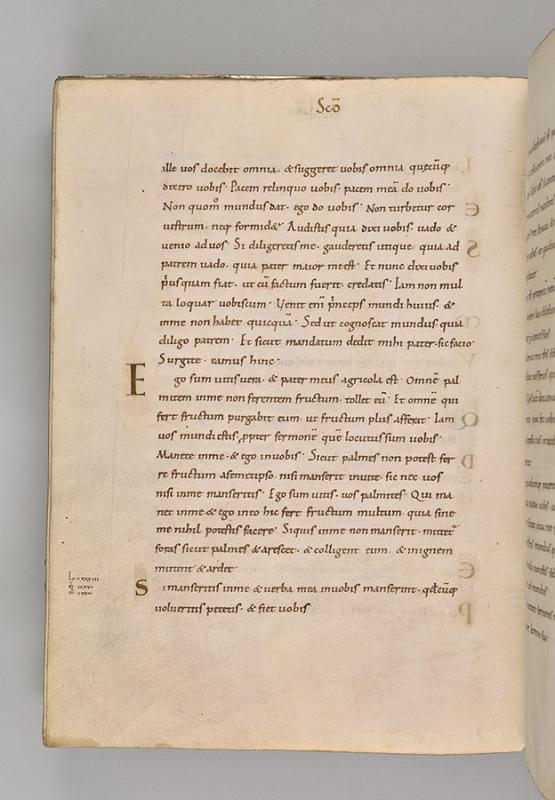 Scō
ille uos docebit omnia. & suggeret uobis omnia quęcūq;
dixero uobis. Pacem relinquo uobis. pacem meā do uobis.
Non quom̄ mundus dat. ego do uobis. Non turbetur cor
uestrum. neq; formid&. Audistis quia dixi uobis. uado &
uenio ad uos. Si diligeretis me. gauderetis utique. quia ad
patrem uado. quia pater maior me est. Et nunc dixi uobis
p̄usquam fiat. ut cū factum fuerit. credatis. Iam non mul
ta loquar uobiscum. Uenit eni p̄nceps mundi huius. &
in me non habet quicquā. Sed ut cognoscat mundus quia
diligo patrem. Et sicut mandatum dedit mihi pater. sic facio.
Surgite. eamus hinc.
Ego sum uitis uera. & pater meus agricola est. Omnē pal
mitem in me non ferentem fructum. tollet eū. Et omnē qui
fert fructum purgabit eum. ut fructum plus afferat. Iam
uos mundi estis, ꝓpter sermonē quē locutus sum uobis.
Manete in me. & ego in uobis. Sicut palmes non potest fer
re fructum a semetipso. nisi manserit in uite. sic nec uos
nisi in me manseritis. Ego sum uitis. uos palmites. Qui ma
net in me & ego in eo hic fert fructum multum. quia sine
me nihil potestis facere. Si quis in me non manserit. mittet̄
foras sicut palmes & arescet. & colligent eum. & in ignem
mittent & ardet.
Si manseritis in me & uerba mea in uobis manserint. qdcūq;
uolueritis petetis. & fiet uobis